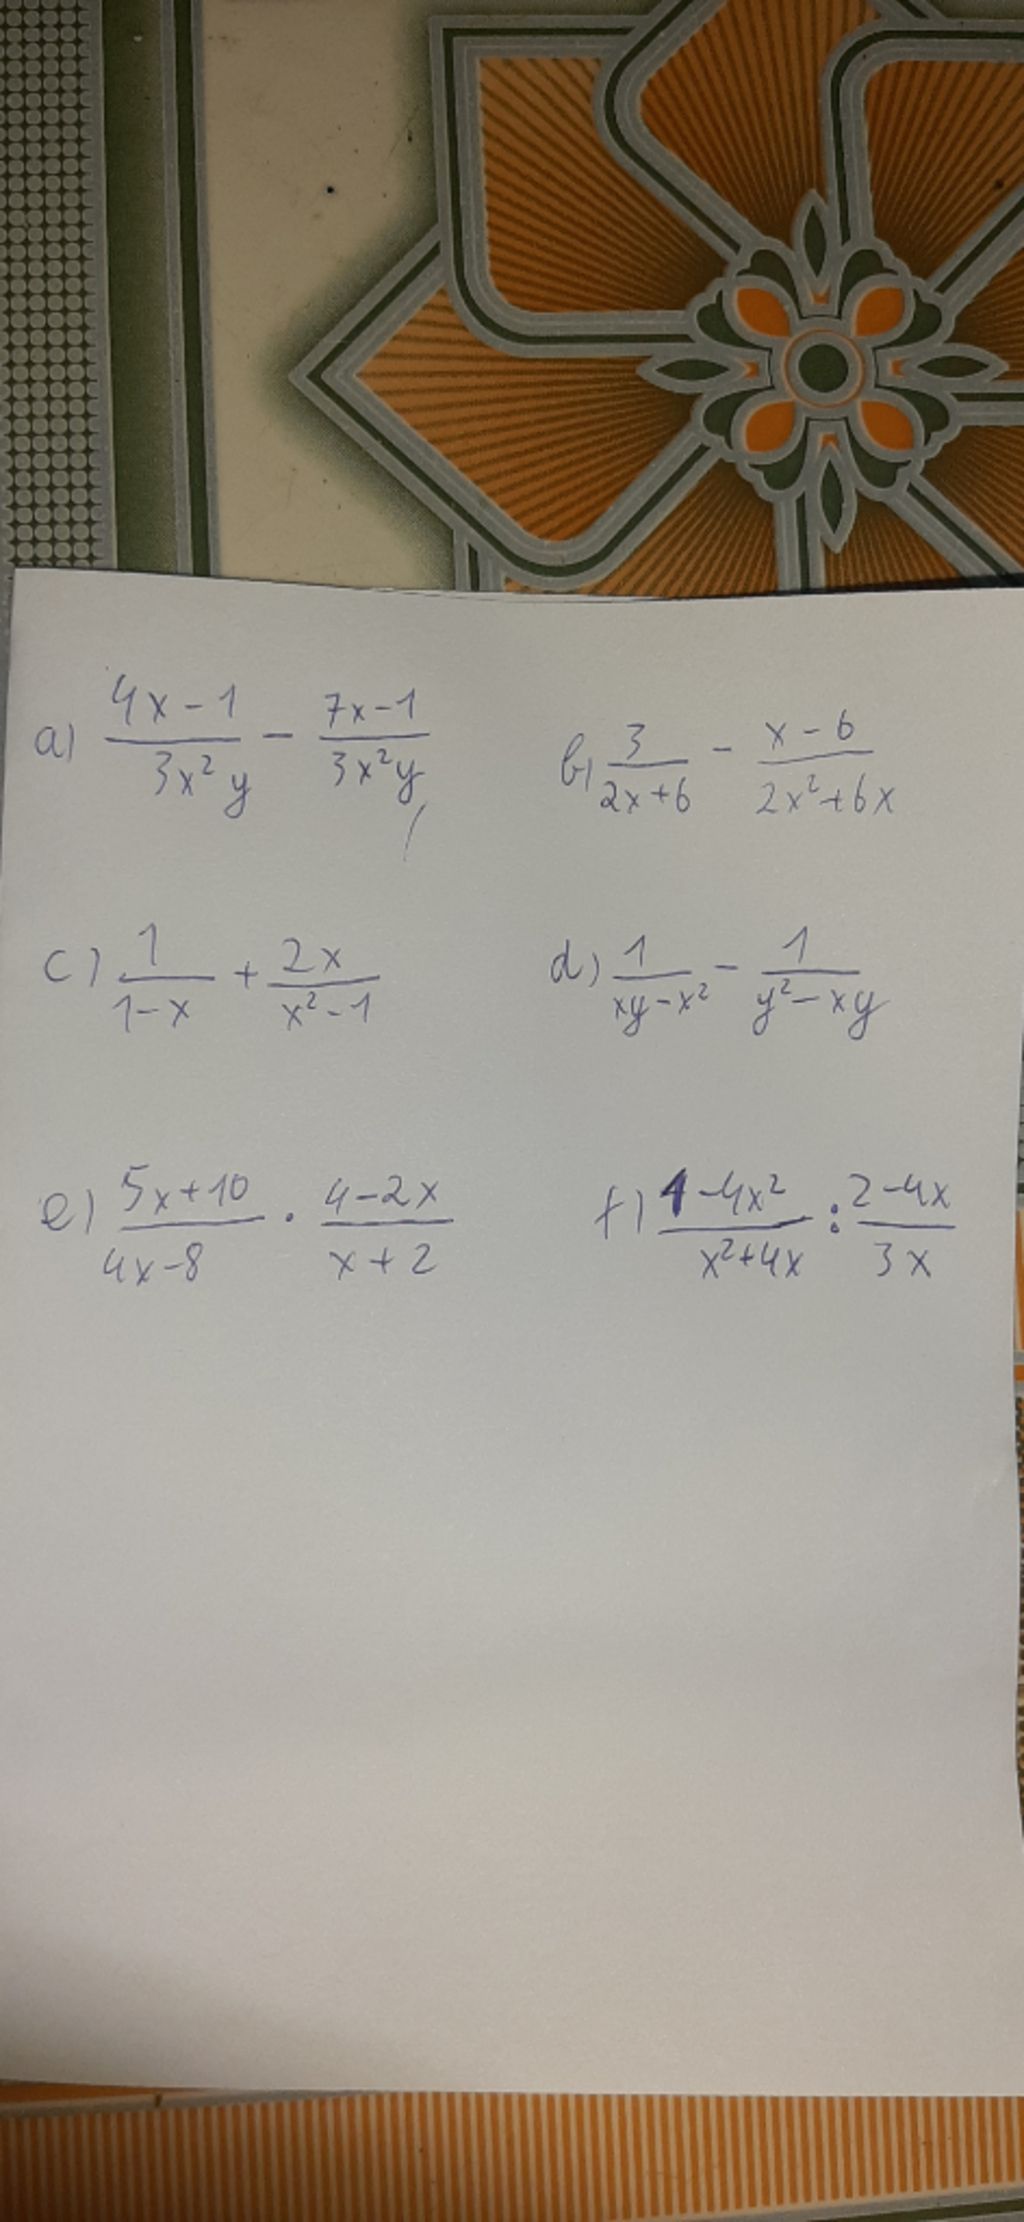 a) (4x-1)/(3x²y) - (7x-1)/(3x²y) b) 3/(2x+6) - (x-6)/(2x²+6x)
c) 1/(1-x) + 2x/(x²-1) d) 1/(xy-x²) - 1/(y²-xy)
e) (5x+10)/(4x-8) . (4-2x)/(x+2) f) (1-4x²)/(x²+4x) : (2-4x)/(3x)